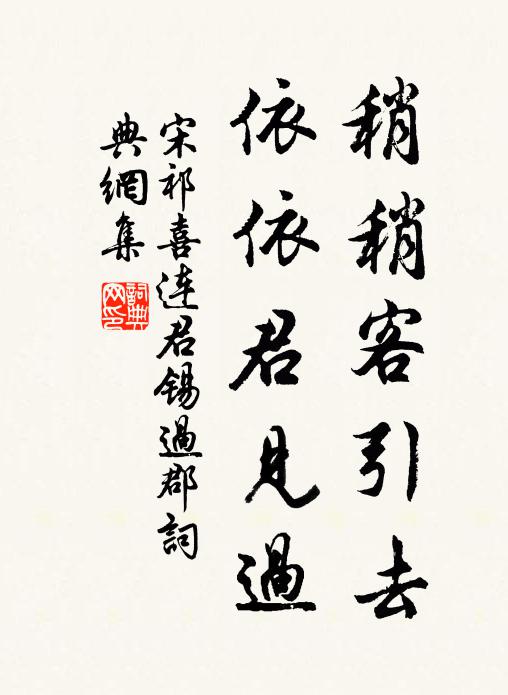 稍稍客引去
依依君見過
宋祁喜連君錫過郡詞
典網集
詞典
网印